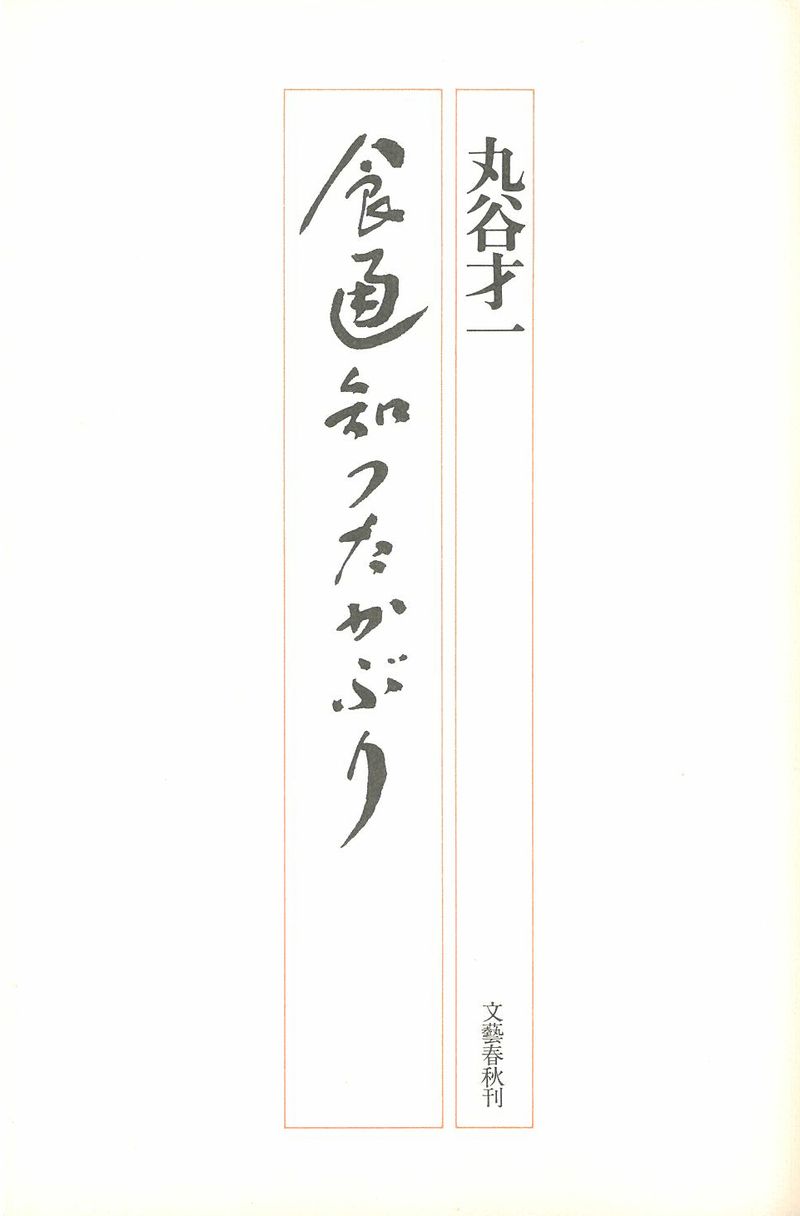 丸谷才一
食通知ったかぶり
文藝春秋刊